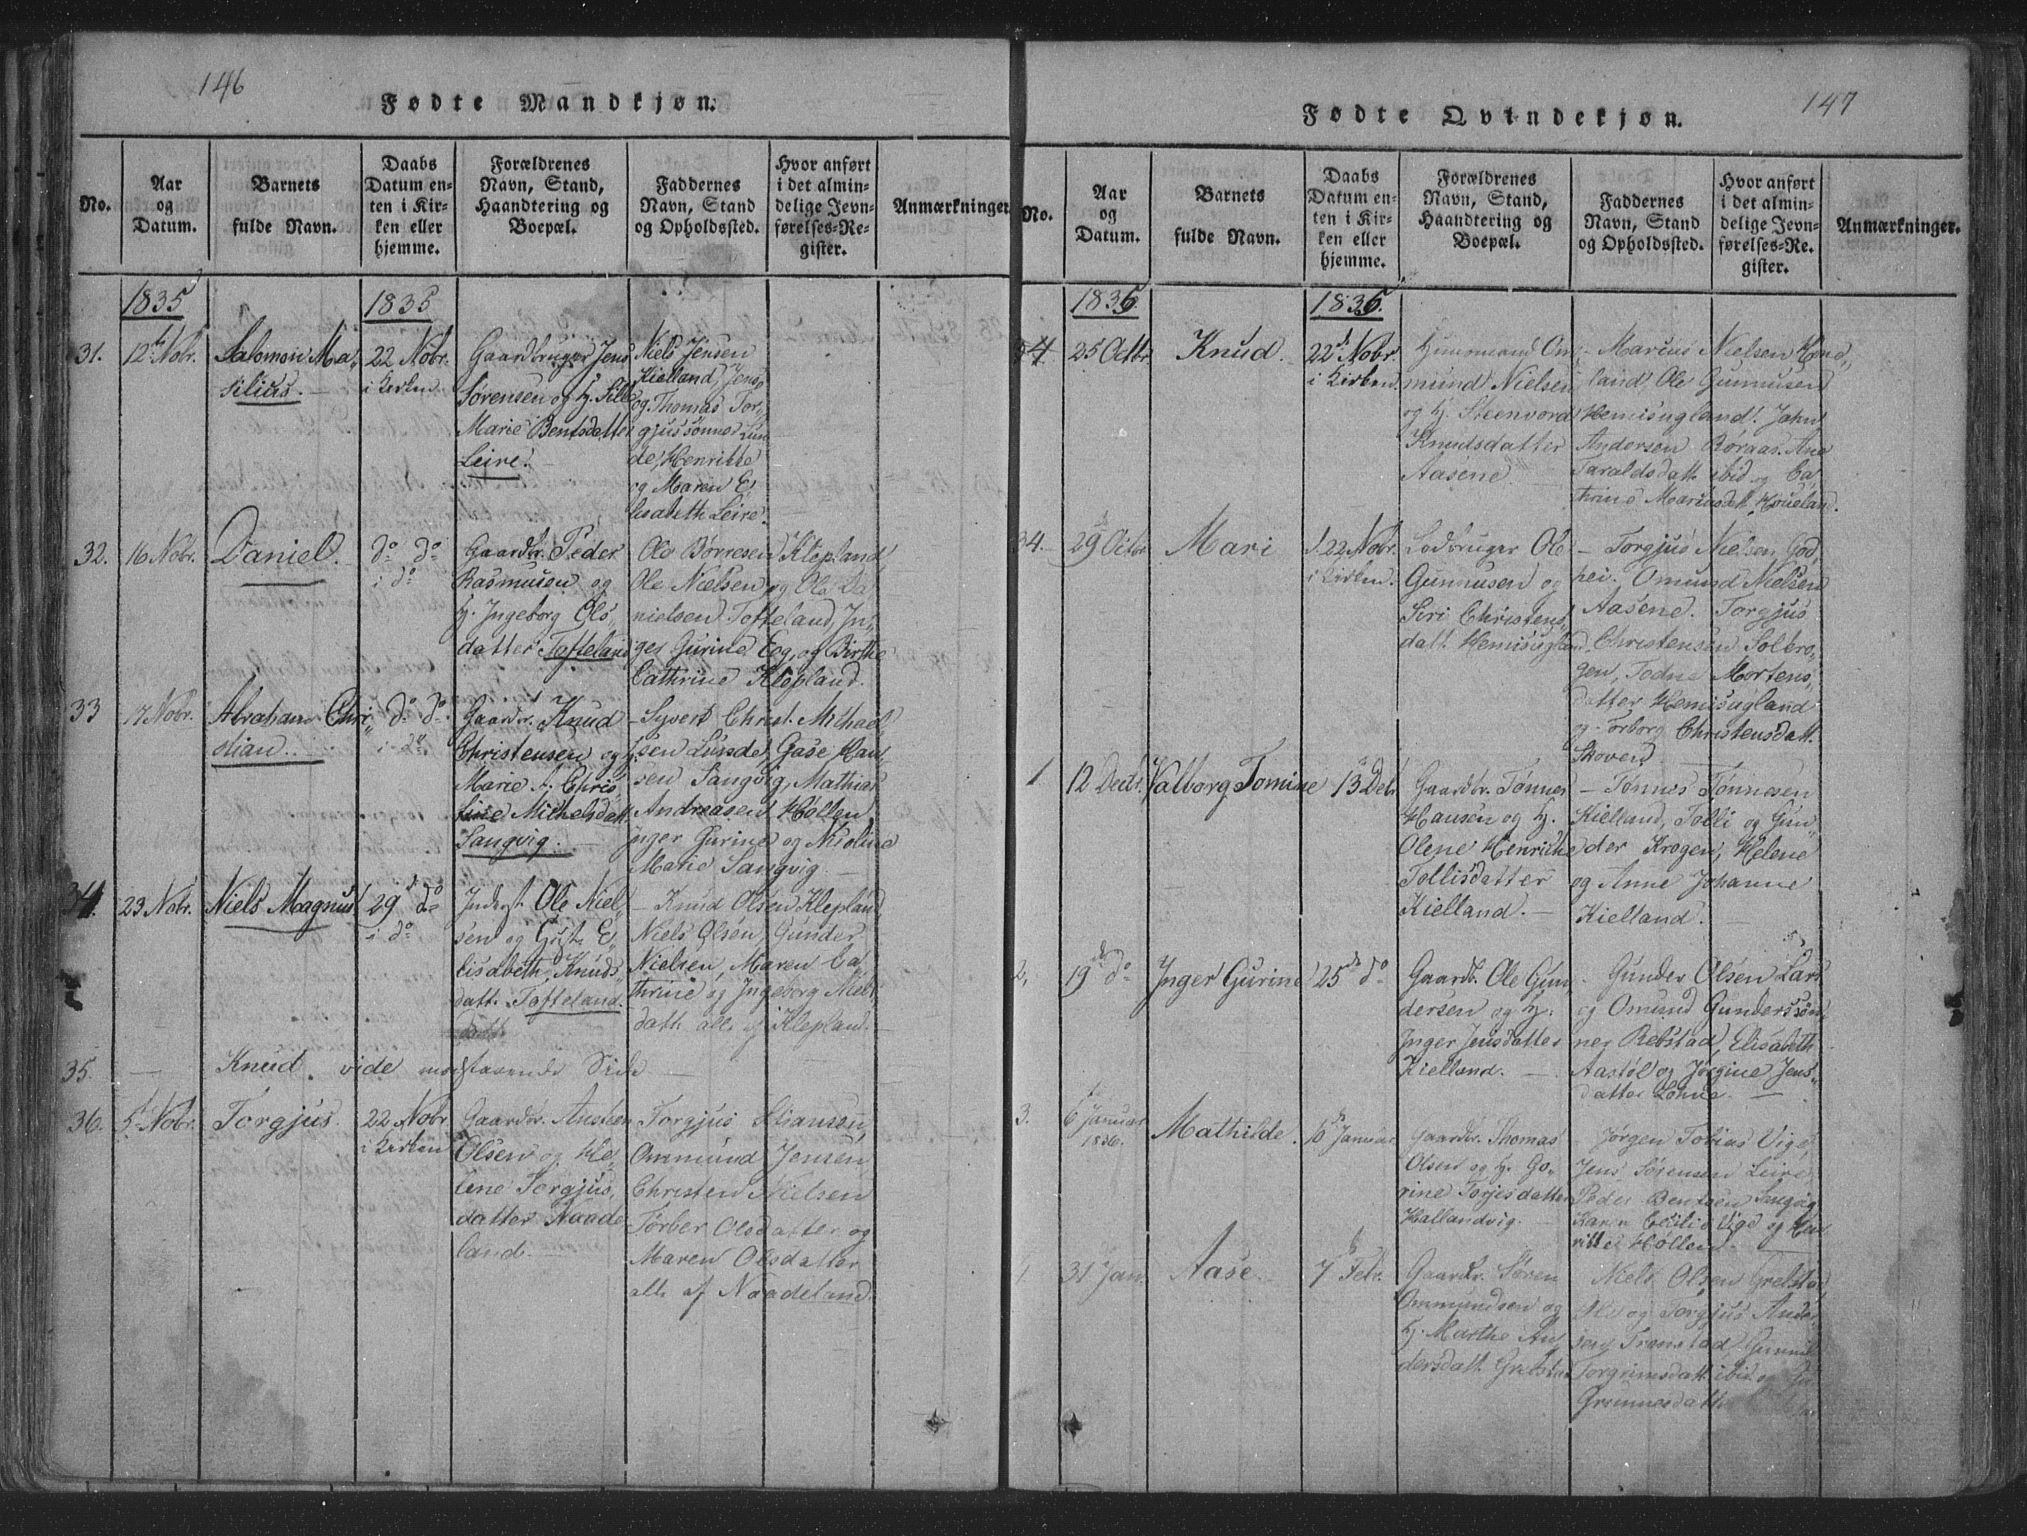 146
Fødte Mandkjøn.
No.
Aar
og
Datum.
Barnets
fulde Navn.
Daabs
Datum en-
ten i Kir-
ken eller
hjemme.
Forældrenes
Navn, Stand,
Haandtering og
Boepæl.
Faddernes
Navn, Stand
og Opholdssted.
Hvor anført
i det almin-
delige Jevn-
førelses-Re-
gister.
Anmærkninger.
1835
1835
31.
12te Nobr.
Salomon Ma-
silius.
22 Nobr.
i Kirken
Gaardbruger Jens
Sørensen og H. Sille
Marie Bentsdatter
Leire.
Niels Jensen
Kielland, Jens
og Thomas Tor-
gjussønner Lun-
de, Henritte
og Maren E-
lisabeth Leire.
32.
16 Nobr.
Daniel.
do do
i do
Gaardbr. Peder
Rasmusen og
H. Ingeborg Ols
datter Tofteland
Ole Børresen Klepland,
Ole Nielsen og Ole Da-
nielsen Tofteland, In-
ger Gurine Eeg, og Birthe
Cathrine Klepland.
33
17 Nobr.
Abraham Chri-
stian.
do do
i do
Gaardbr. Knud
Christensen og H.
Marie Chris-
tine Michelsdatt.
Sangvig.
Syvert Christ. Michael-
sen Lunde, Gase Han-
sen Sangvig, Mathias
Andreasen Høllen
Inger Gurine og Nicoline
Marie Sangvig.
34.
23 Nobr.
Niels Magnus
29 do
i do
Inderst Ole Niel-
sen og Gift E-
lisabeth Knuds
datt. Tofteland.
Knud Olsen Klepland
Niels Olsen, Gunder
Nielsen, Maren Ca-
thrine og Ingeborg Niels
datt. alle af Klepland.
35.
Knud. vide modstaaende Side
36.
5 Nobr.
Torgjus.
22 Nobr.
i Kirken
Gaardbr. Austen
Olsen og He-
lene Torgjus,
datter Naade-
land.
Torgjus Stiansen,
Ommund Jensen
Christen Nielsen
Torber Olsdatter og
Maren Olsdatter
alle af Naadeland.
147
Fødte Qvindekjøn.
No.
Aar
og
Datum.
Barnets
fulde Navn.
Daabs
Datum en-
ten i Kir-
ken eller
hjemme.
Forældrenes
Navn, Stand,
Haandtering og
Boepæl.
Faddernes
Navn, Stand
og Opholdssted.
Hvor anført
i det almin-
delige Jevn-
førelses-Re-
gister.
Anmærkninger.
1835
1835.
25 Octbr.
Knud.
22 Nobr.
i Kirken
Huusmand Om-
mund Nielsen
og H. Steenvord
Knudsdatter
Aasene
Marius Nielsen
land Ole Gunnusen
Hemisugland. Jahn
Andersen Boraas. Ane
Taraldsdatt. ibid og Ca-
thrine Mariusdatt.
34.
29 Octbr.
Mari
22 Nobr.
i Kirken.
Lodbruger Ole
Gunnusen og
Siri Christens-
datt. Hemisugland
Torgjus Nielsen God-
hei. Omund Nielsen
Aasene. Torgjus
Christensen Solbro-
gen, Todne Mortens-
datter Hemisugland
og Torborg Christensdatt.
Skoven
1
12 Decbr.
Valborg Tomine
13 Debr
Gaardbr. Tønnes
Hansen og H.
Olene Henriche
Tollisdatter
Kielland.
Tønnes Tønnesen
Kielland, Tolli og Gun-
der Krogen, Helene
og Anne Johanne
Kielland.
2,
19 do
Inger Gurine
25 do
Gaardb. Ole Gun-
dersen og H.
Inger Jensdatter
Kielland.
Gunder Olsen Lars
og Omund Gunderssøn-
ner Rebstad, Elisabeth
Aastøl og Jørgine Jens-
datter Lohne.
3.
6 Januar
1836.
Mathilde.
10 Januar
Gaardbr. Thomas
Olsen og H. Go-
rine Torjesdatter
Hallandvig.
Jørgen Tobias Vige,
Jens Sørensen Leire,
Peder Bentsen Sangvig
Karen Cecilie Vige og Hen-
ritte Høllen.
1.
31 Jan.
Aase.
7 Febr.
Gaardbr. Søren
Ommundsen og
H. Marthe An-
dersdatt. Grebstad
Niels Olsen Grebstad
Ole og Torgjus Ander-
sen Tronstad
Torgrimsdatt. ibid og